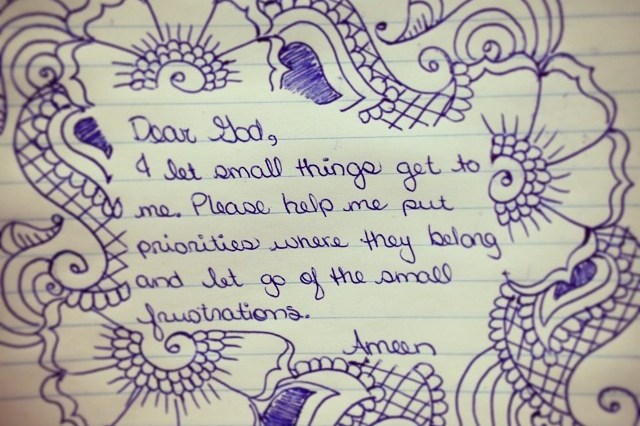 Dear God,
I let small things get to
me. Please help me put
priorities where they belong
and let go of the small
frustrations.
Ameen